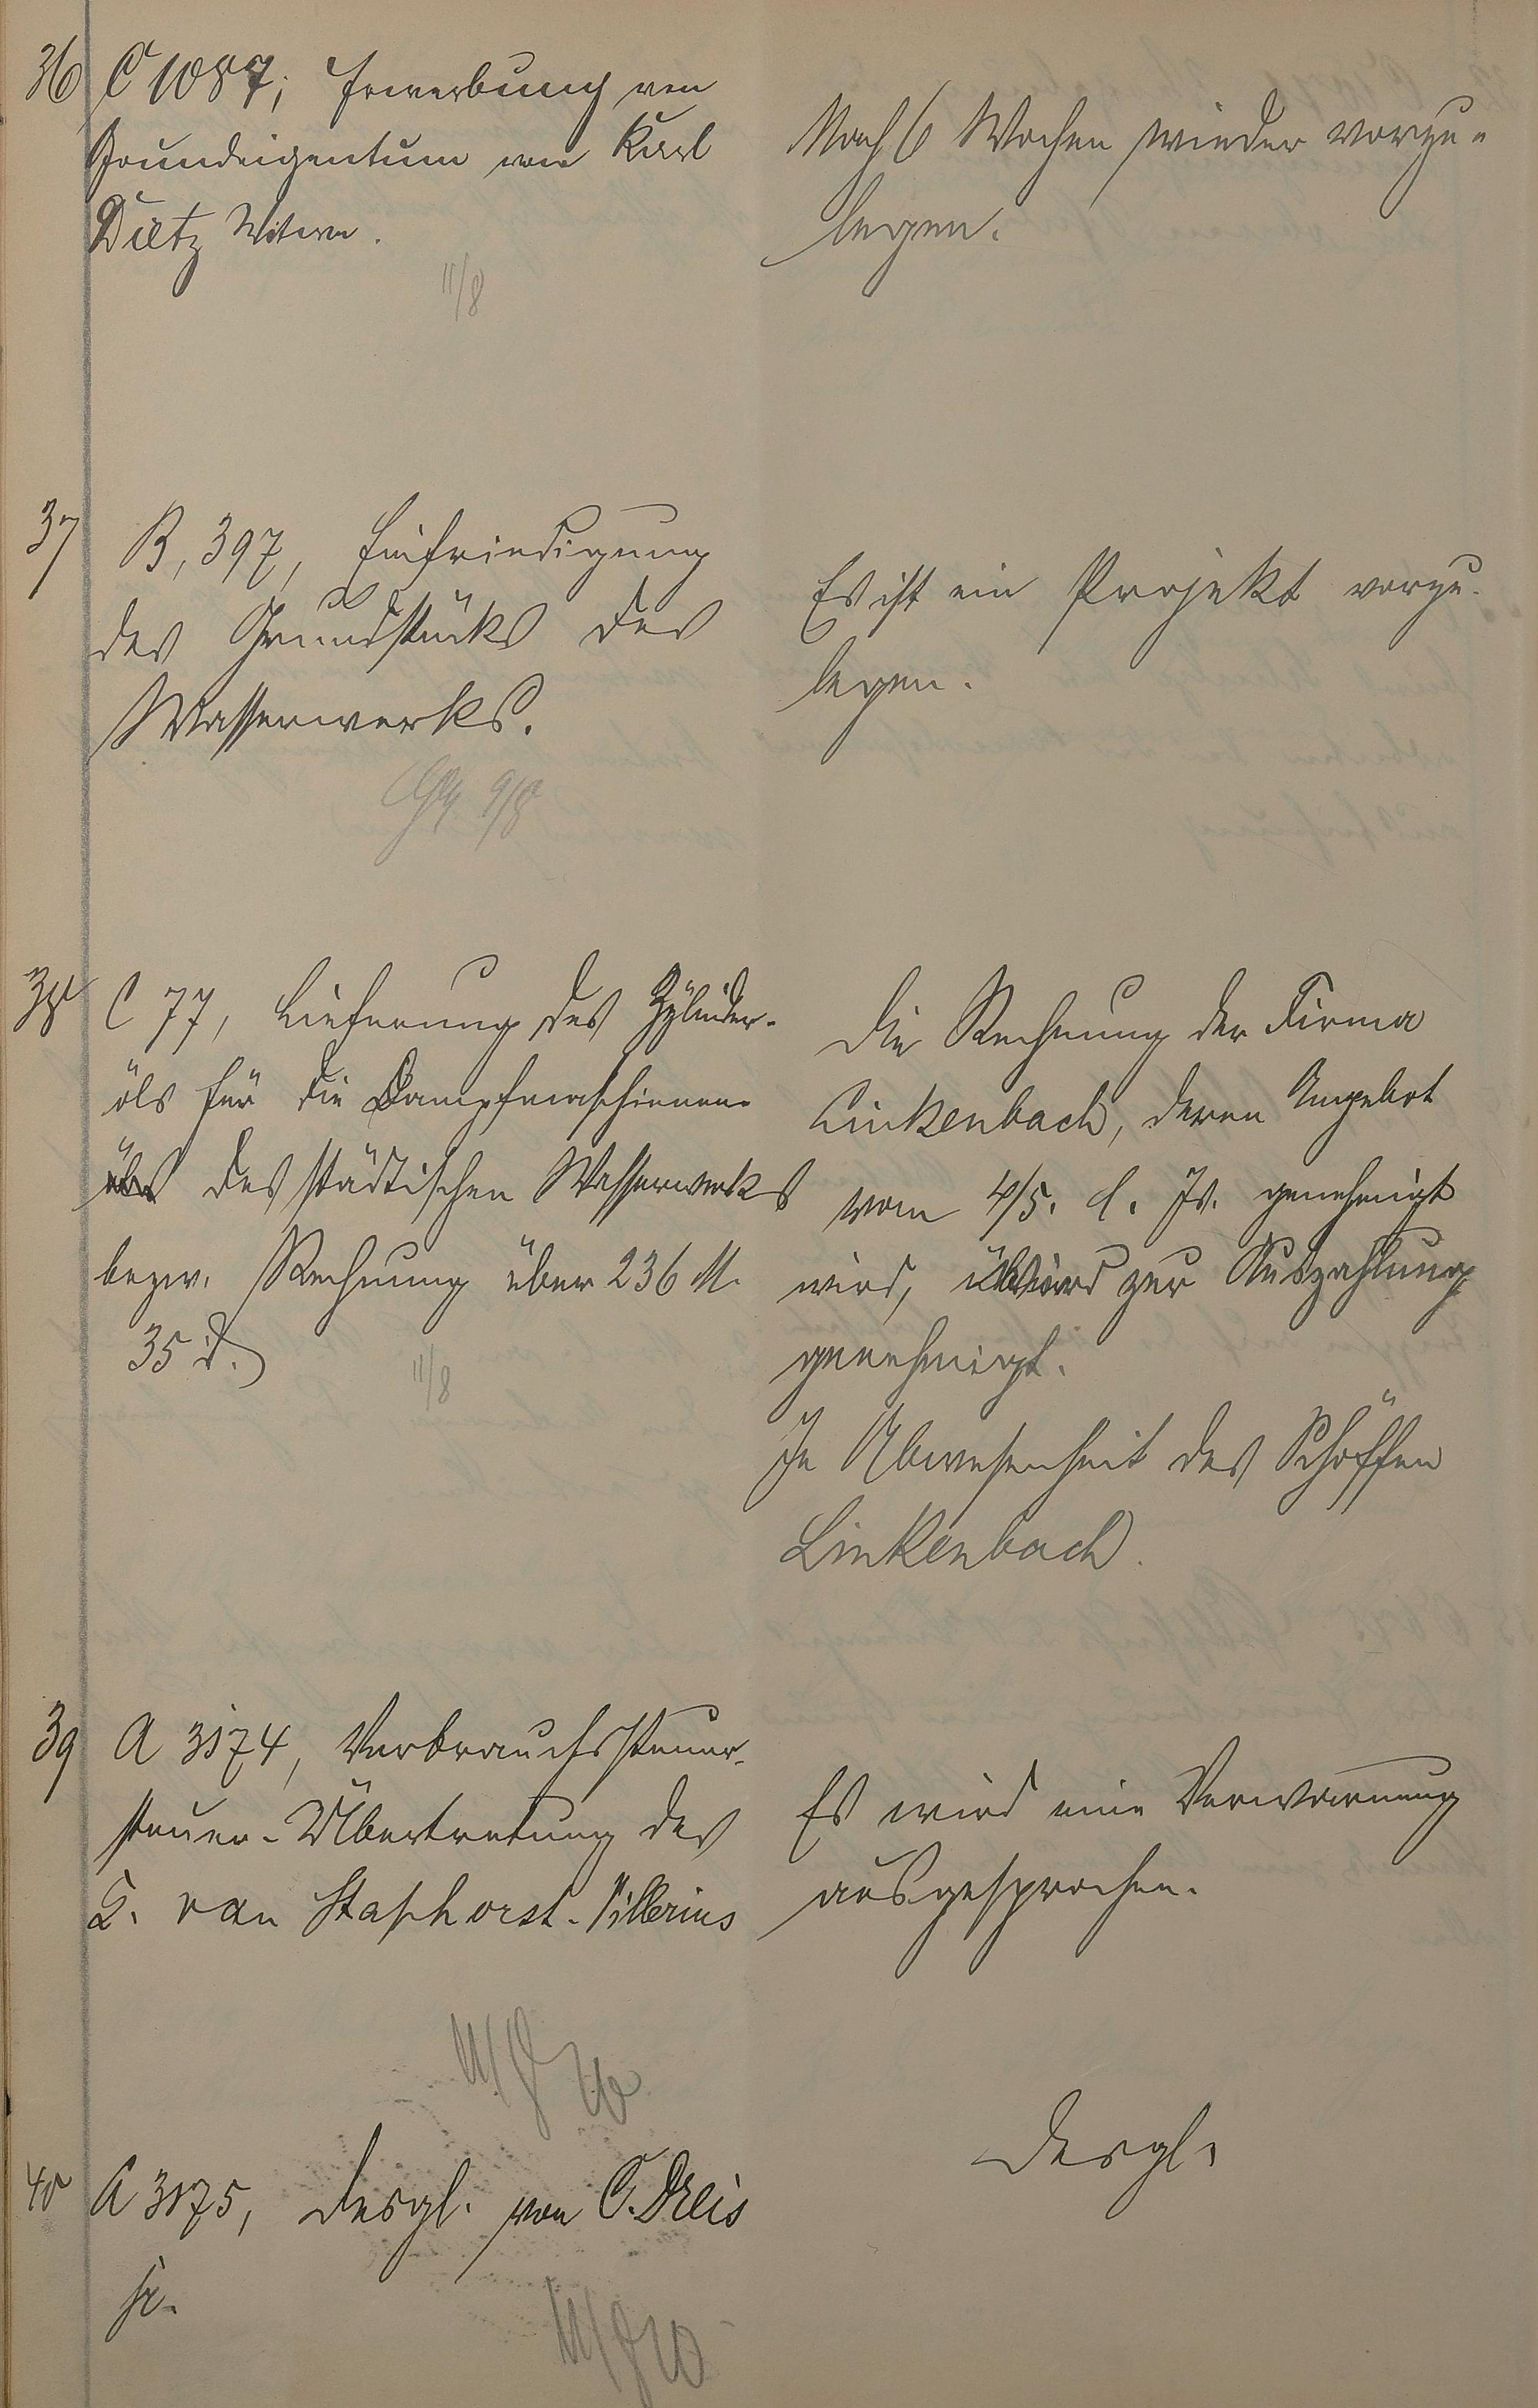 36 C 1087; Erwerbung von
Grundeigentum von Karl
Dietz Witwe.
11/8
Nach 6 Wochen wieder vorzu-
legen.
37 B, 397, Einfriedigung
des Grundstücks des
Wasserwerks.
9/8
Es ist ein Projekt vorzu-
legen.
38 C 77, Lieferung des Zylinder-
öls für die Dampfmaschienen-
des städtischen Wasserwerks
bezw. Rechnung über 236 M.
35 d.
11/8
Die Rechnung der Firma
Linkenbach, deren Angebot
vom 4/5. l. Js. genehmigt
wird, wird zur Auszahlung
genehmigt.
In Abwesenheit des Schöffen
Linkenbach.
39 A 3174, Verbrauchssteuer-
steuer-Übertretung des
van Staphorst-
Es wird eine Verwarnung
ausgesprochen.
11/8
40 A 3175, desgl. von C. Dreis
jr.
desgl.
11/8